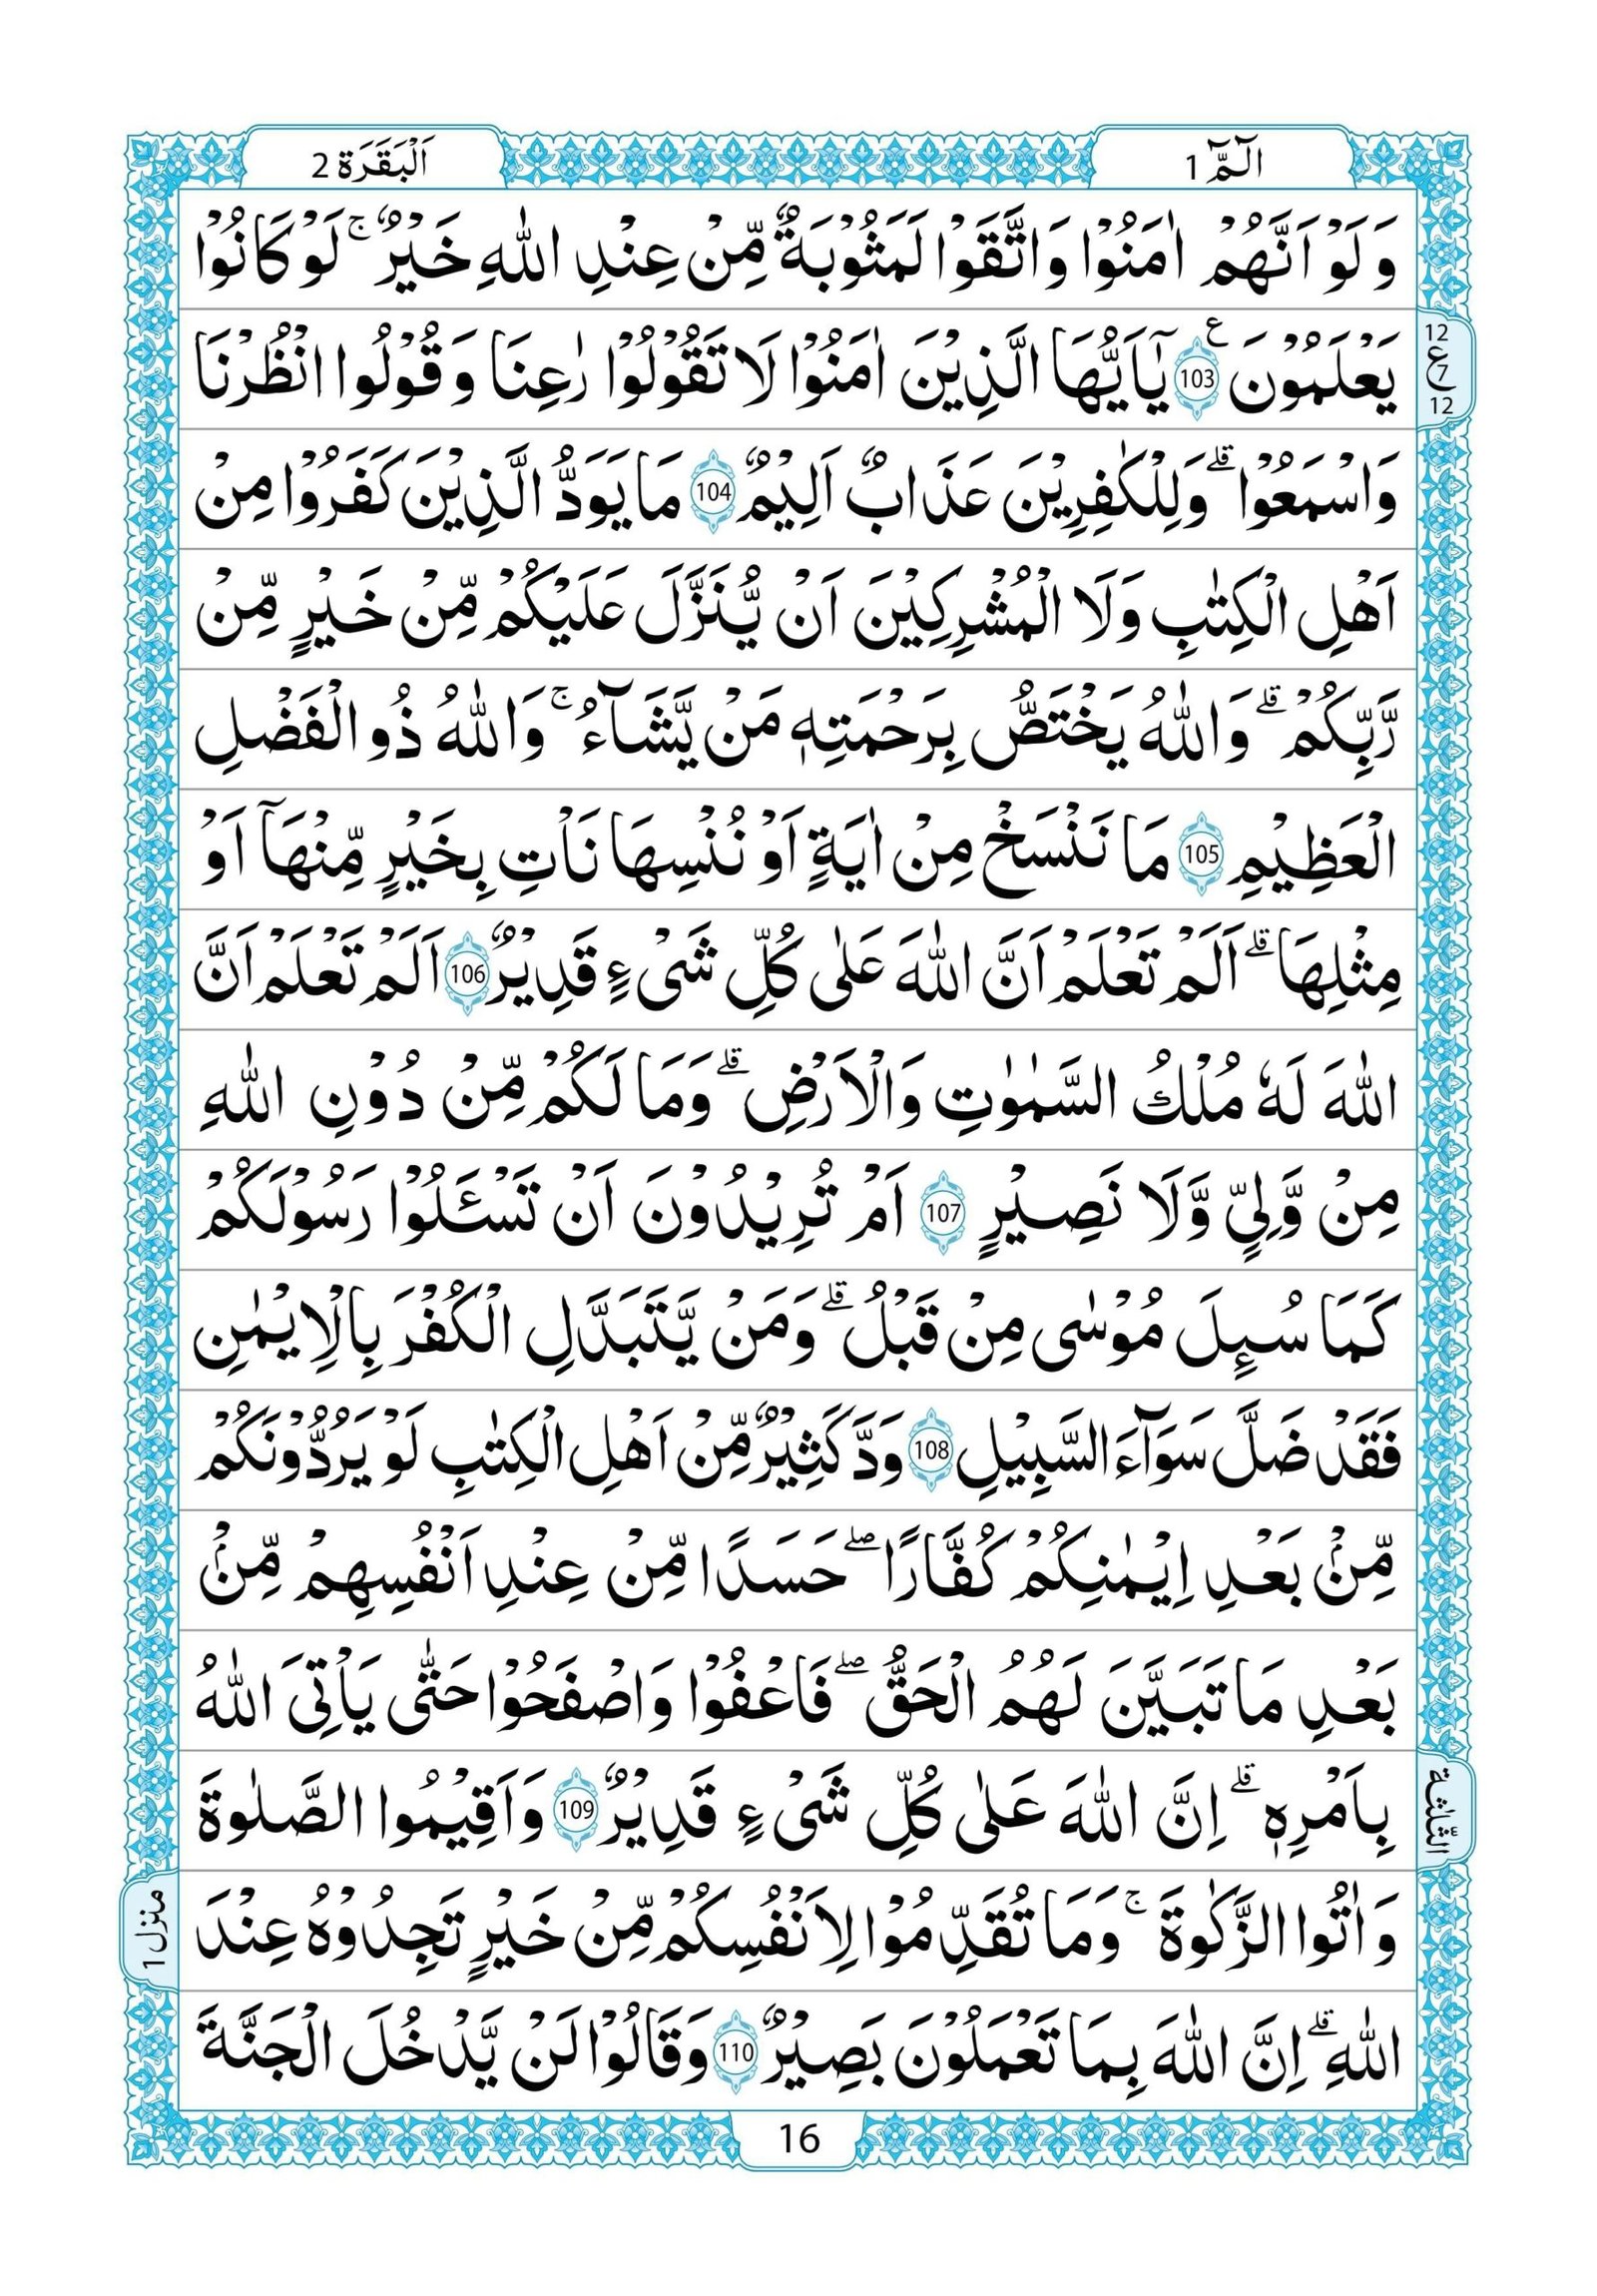 الٓمّٓ 1
اَلْبَقَرَة 2
وَلَوْ اَنَّهُمْ اٰمَنُوْا وَاتَّقَوْا لَمَثُوْبَةٌ مِّنْ عِنْدِ اللّٰهِ خَيْرٌ ۚ لَوْ كَانُوْا
يَعْلَمُوْنَ ࣖ 103 يٰٓاَيُّهَا الَّذِيْنَ اٰمَنُوْا لَا تَقُوْلُوْا رٰعِنَا وَقُوْلُوا انْظُرْنَا
12
ع
7
12
وَاسْمَعُوْا ۗ وَلِلْكٰفِرِيْنَ عَذَابٌ اَلِيْمٌ 104 مَا يَوَدُّ الَّذِيْنَ كَفَرُوْا مِنْ
اَهْلِ الْكِتٰبِ وَلَا الْمُشْرِكِيْنَ اَنْ يُّنَزَّلَ عَلَيْكُمْ مِّنْ خَيْرٍ مِّنْ
رَّبِّكُمْ ۗ وَاللّٰهُ يَخْتَصُّ بِرَحْمَتِهٖ مَنْ يَّشَآءُ ۚ وَاللّٰهُ ذُو الْفَضْلِ
الْعَظِيْمِ 105 مَا نَنْسَخْ مِنْ اٰيَةٍ اَوْ نُنْسِهَا نَأْتِ بِخَيْرٍ مِّنْهَآ اَوْ
مِثْلِهَا ۗ اَلَمْ تَعْلَمْ اَنَّ اللّٰهَ عَلٰى كُلِّ شَىْءٍ قَدِيْرٌ 106 اَلَمْ تَعْلَمْ اَنَّ
اللّٰهَ لَهٗ مُلْكُ السَّمٰوٰتِ وَالْاَرْضِ ۗ وَمَا لَكُمْ مِّنْ دُوْنِ اللّٰهِ
مِنْ وَّلِيٍّ وَّلَا نَصِيْرٍ 107 اَمْ تُرِيْدُوْنَ اَنْ تَسْـَٔلُوْا رَسُوْلَكُمْ
كَمَا سُىِٕلَ مُوْسٰى مِنْ قَبْلُ ۗ وَمَنْ يَّتَبَدَّلِ الْكُفْرَ بِالْاِيْمٰنِ
فَقَدْ ضَلَّ سَوَآءَ السَّبِيْلِ 108 وَدَّ كَثِيْرٌ مِّنْ اَهْلِ الْكِتٰبِ لَوْ يَرُدُّوْنَكُمْ
مِّنْۢ بَعْدِ اِيْمٰنِكُمْ كُفَّارًا ۖ حَسَدًا مِّنْ عِنْدِ اَنْفُسِهِمْ مِّنْۢ
بَعْدِ مَا تَبَيَّنَ لَهُمُ الْحَقُّ ۖ فَاعْفُوْا وَاصْفَحُوْا حَتّٰى يَأْتِىَ اللّٰهُ
بِاَمْرِهٖ ۗ اِنَّ اللّٰهَ عَلٰى كُلِّ شَىْءٍ قَدِيْرٌ 109 وَاَقِيْمُوا الصَّلٰوةَ
الثّلٰثة
وَاٰتُوا الزَّكٰوةَ ۚ وَمَا تُقَدِّمُوْا لِاَنْفُسِكُمْ مِّنْ خَيْرٍ تَجِدُوْهُ عِنْدَ
منزل 1
اللّٰهِ ۗ اِنَّ اللّٰهَ بِمَا تَعْمَلُوْنَ بَصِيْرٌ 110 وَقَالُوْا لَنْ يَّدْخُلَ الْجَنَّةَ
16